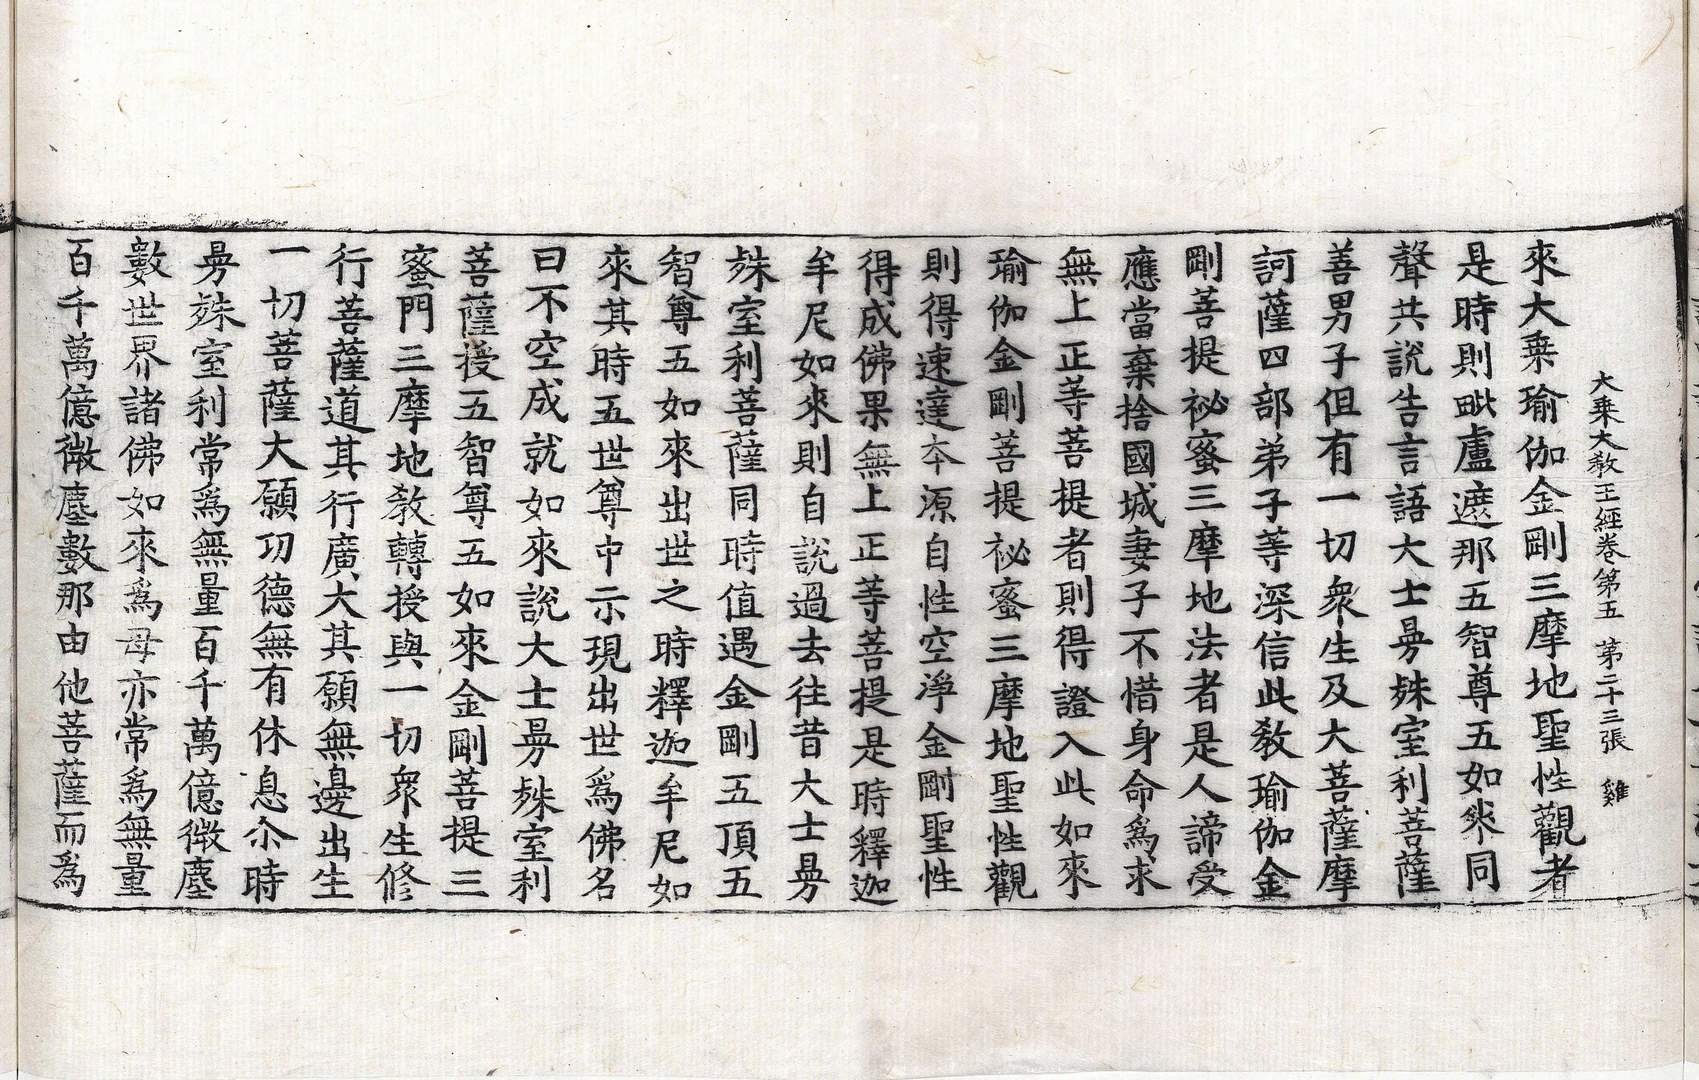 大乗大教王經卷第五　第二十三張　雞
來大乗瑜伽金剛三摩地聖性觀者
是時則毗盧遮那五智尊五如来同
聲共說告言語大士曼殊室利菩薩
善男子但有一切衆生及大菩薩摩
訶薩四部弟子等深信此教瑜伽金
剛菩提祕蜜三摩地法者是人諦受
應當棄捨國城妻子不惜身命爲求
無上正等菩提者則得證入此如來
瑜伽金剛菩提祕蜜三摩地聖性觀
則得速達本源自性空淨金剛聖性
得成佛果無上正等菩提是時釋迦
牟尼如來則自說過去往昔大士曼
殊室利菩薩同時值遇金剛五頂五
智尊五如來出世之時釋迦牟尼如
來其時五世尊中示現出世爲佛名
曰不空成就如來說大士曼殊室利
菩薩授五智尊五如來金剛菩提三
蜜門三摩地教轉授與一切衆生修
行菩薩道其行廣大其願無邊出生
一切菩薩大願功德無有休息尒時
曼殊室利常爲無量百千萬億微塵
數世界諸佛如來爲母亦常爲無量
百千萬億微塵數那由他菩薩而爲